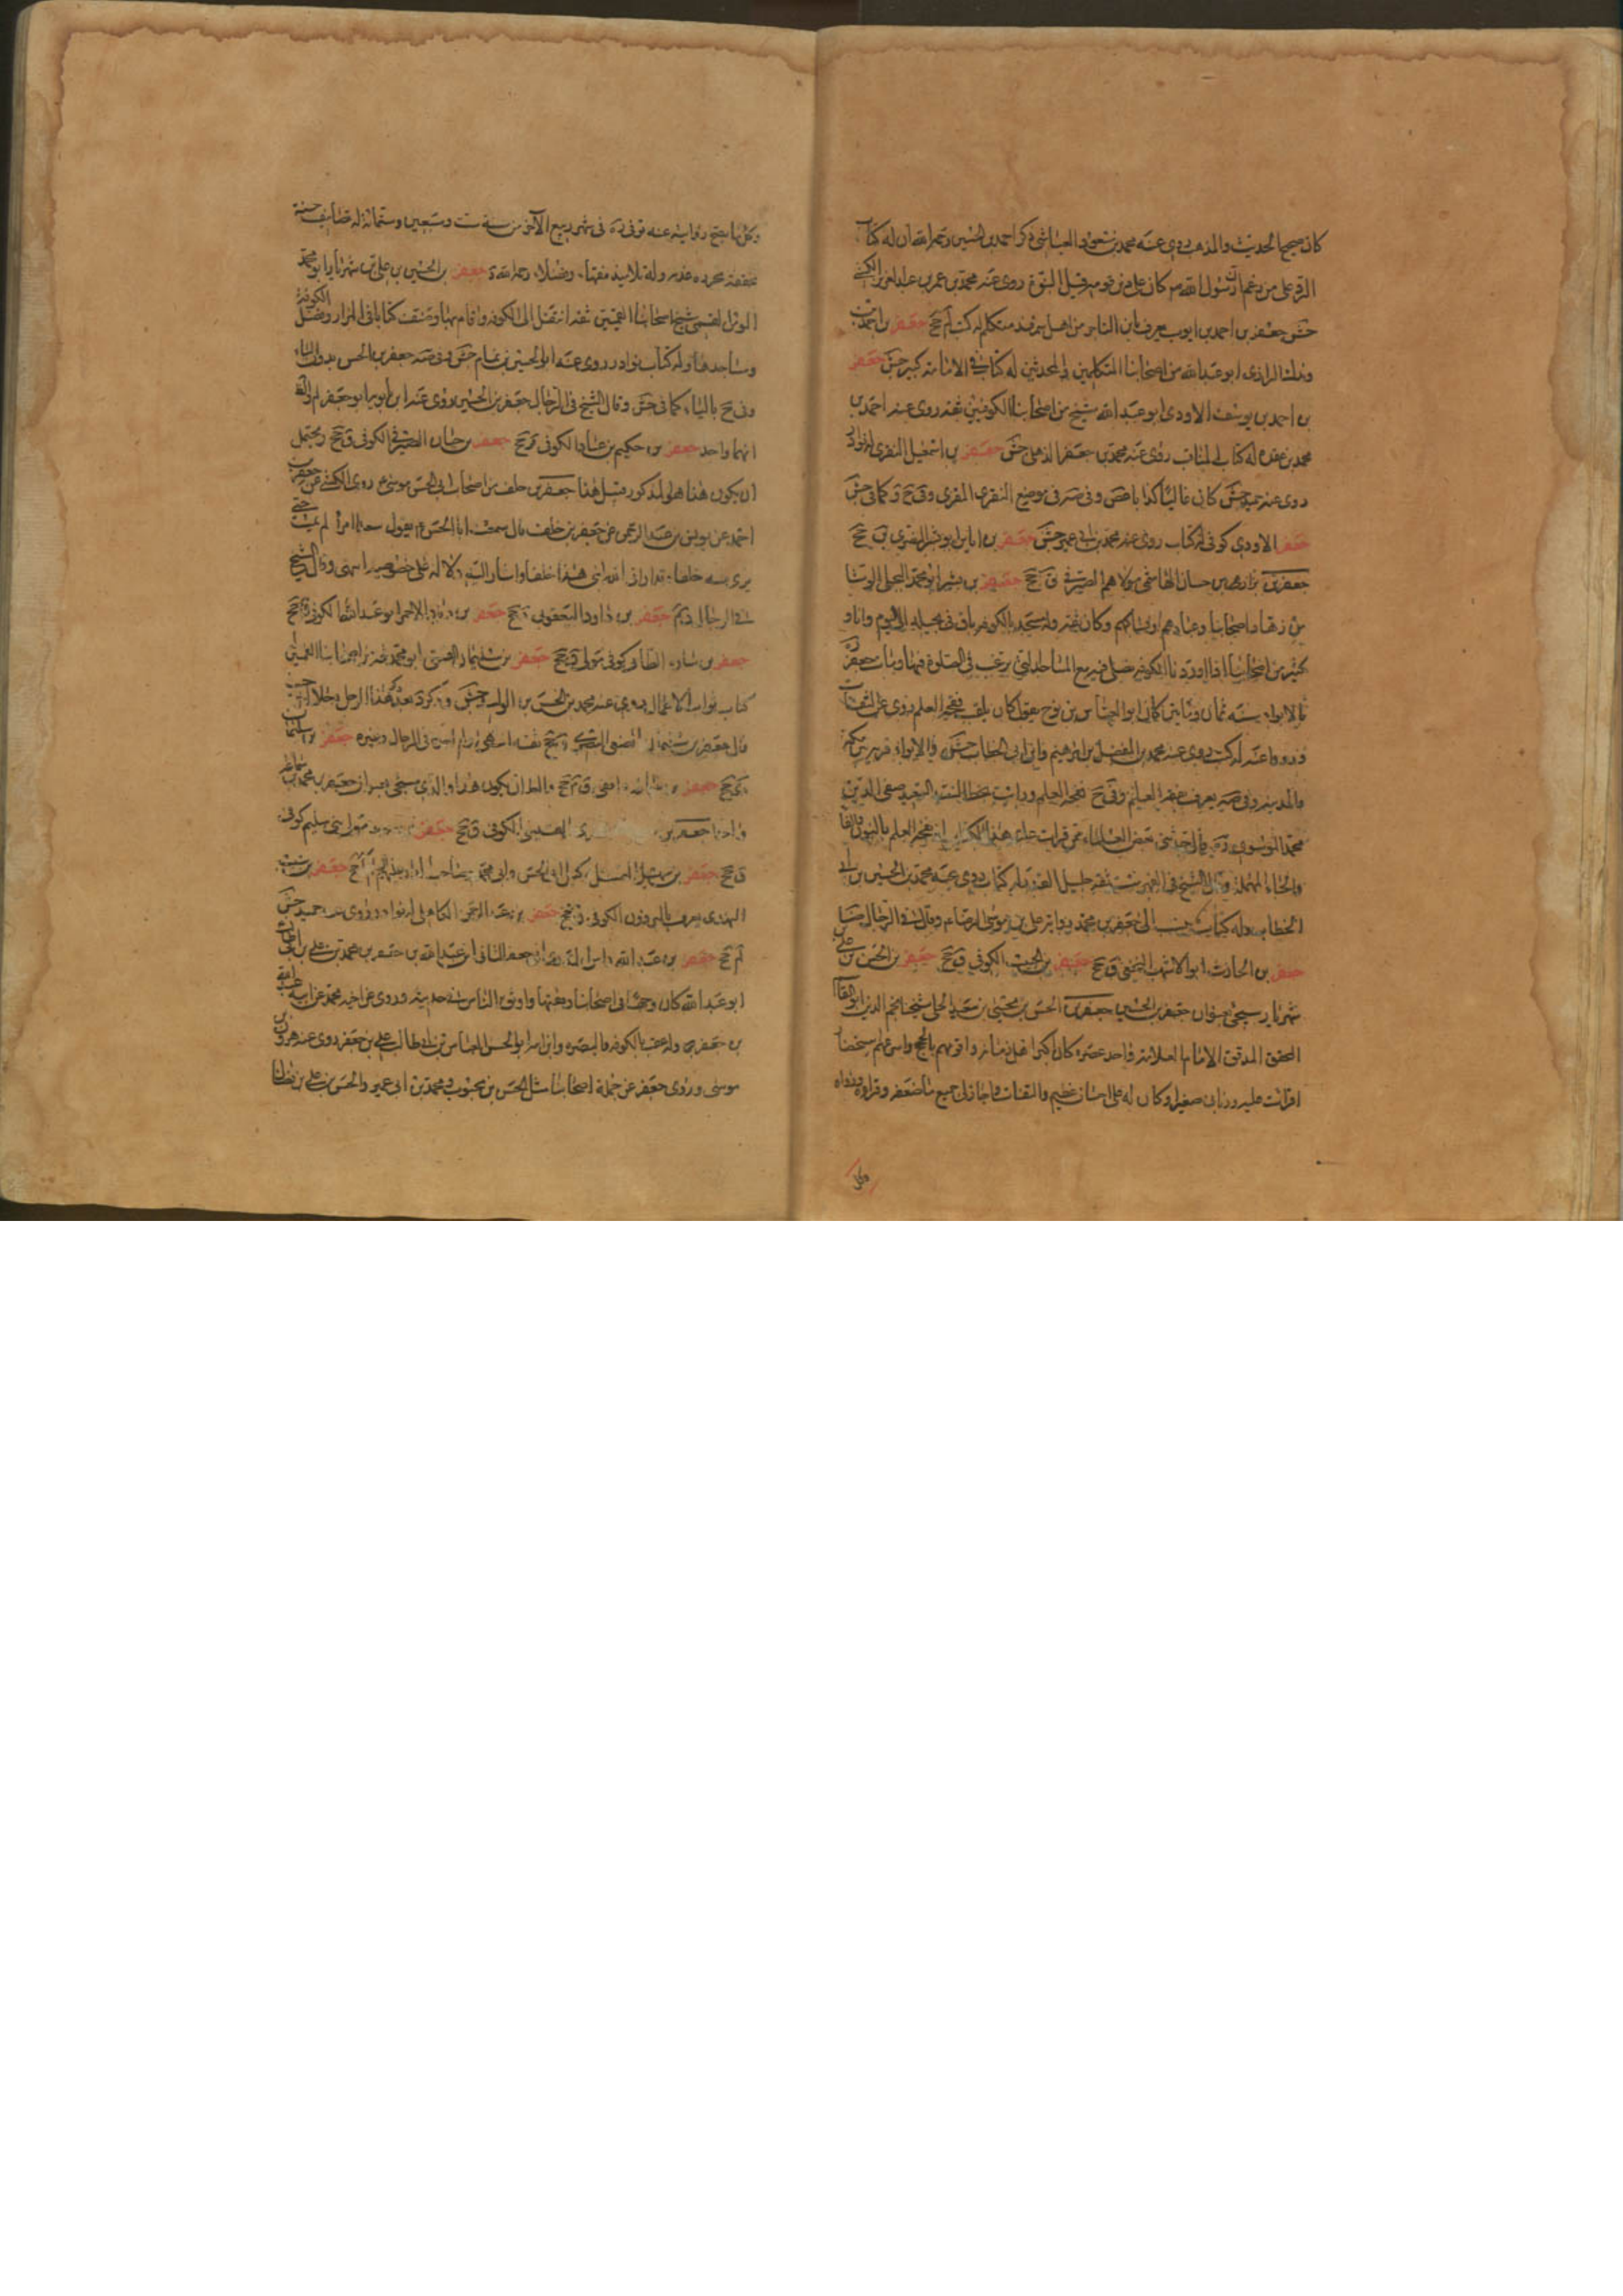 كان صحيح الحديث والمذهب روى عنه محمد بن مسعود العياشي ذكر احمد بن الحسين رحمه الله ان له كتاب
الرد على من زعم ان رسول الله ص كان على دين قومه قبل النبوة روى عنه محمد بن عمر بن عبد العزيز الكشي
جش جعفر بن احمد بن ايوب يعرف بابن التاجر من اهل سمرقند متكلم له كتب لم جخ جعفر بن احمد بن
وندك الرازي ابو عبد الله من اصحابنا المتكلمين والمحدثين له كتاب في الامامة كبير جش جعفر
بن احمد بن يوسف الاودي ابو عبد الله شيخ من اصحابنا الكوفيين ثقة روى عنه احمد بن
محمد بن عقدة له كتاب المناقب روى عنه محمد بن جعفر الذهلي جش جعفر بن اسمعيل المنقري له نوادر
روى عنه حميد جش كان غاليا كذابا غض وفي صه في موضع المنقري المقري وفي ح د كما في جش
جعفر الاودي كوفي له كتاب روى عنه محمد بن ابي عمير جش جعفر بن اياس ابو بشر النضري ق جخ
جعفر بن حسان الهاشمي مولاهم الصيرفي ق جخ جعفر بن بشير ابو محمد البجلي الوشا
من زهاد اصحابنا وعبادهم ونساكهم وكان ثقة وله مسجد بالكوفة باق في بجيلة الى اليوم وانا و
كثير من اصحابنا اذا اوردنا الكوفة نصلي فيه مع المساجد التي يرغب في الصلوة فيها ومات جعفر ره
بالابواء سنة ثمان ومائتين كان ابو العباس بن نوح يقول كان يلقب فقحة العلم روى عن الثقات
ورووا عنه له كتب روى عنه محمد بن المفضل بن ابرهيم وابن ابي الخطاب جش والابواء قرية بين مكة
والمدينة وفي صه يعرف بقفة العلم وفي ح نفحة العلم ورايت بخط السيد السعيد صفي الدين
محمد الموسوي ره قال حدثني بعض العلماء ممن قرات عليه هذا الكتاب انه نفحة العلم بالنون والفا
والحاء المهملة وقال الشيخ في الفهرست ثقة جليل القدر له كتاب روى عنه محمد بن الحسين بن ابي
الخطاب وله كتاب ينسب الى جعفر بن محمد رواية علي بن موسى الرضا ع وقال في الرجال ضا
جعفر بن الحارث ابو الاشهب النخعي ق جخ جعفر بن الحبيب الكوفي ق جخ جعفر بن الحسن بن علي بن
شهريار سيجئ بعنوان جعفر بن الحسين جعفر بن الحسن بن يحيى بن سعيد الحلي شيخنا نجم الدين ابو القاسم
المحقق المدقق الامام العلامة واحد عصره كان اكبر اهل زمانه واقومهم بالحجة واسرعهم استحضارا
قرات عليه ورباني صغيرا وكان له علي احسان عظيم والتفات واجاز لي جميع ما صنفه وقراه ورواه
وكل
وكل ما يصح روايته عنه توفي ره في شهر ربيع الآخر من سنة ست وسبعين وستمائة له تصانيف حسنة
محققة محررة عذبة وله تلاميذ فقهاء وفضلاء رحمه الله د جعفر بن الحسين بن علي بن شهريار ابو محمد
المؤمن القمي شيخ اصحابنا القميين ثقة انتقل الى الكوفة واقام بها وصنف كتابا في المزار وفضل الكوفة
ومساجدها وله كتاب نوادر روى عنه ابو الحسين بن تمام جش وفي صه جعفر بن الحسن بدون الياء
وفي ح بالياء كما في جش وقال الشيخ في الرجال جعفر بن الحسين روى عنه ابن بابويه ابو جعفر لم والظ
انهما واحد جعفر بن حكيم بن عباد الكوفي ق جخ جعفر بن حيان الصيرفي الكوفي ق جخ ويحتمل
ان يكون هذا هو المذكور قبل هذا جعفر بن خلف من اصحاب ابي الحسن موسى ع روى الكشي عن جعفر بن
احمد عن يونس بن عبد الرحمن عن جعفر بن خلف قال سمعت ابا الحسن ع يقول سعد امرؤ لم يمت حتى
يرى منه خلفا وقد اراني الله ابني هذا خلفا واشار اليه دلالة على خصوصيته انتهى وقال الشيخ
في الرجال ديم جعفر بن داود اليعقوبي جخ جعفر بن زياد الاحمر ابو عبد الله الكوفي ق جخ
جعفر بن سارة الطائي كوفي مولى ق جخ جعفر بن سليمان القمي ابو محمد ثقة من اصحابنا القميين له
كتاب ثواب الاعمال روى عنه محمد بن الحسن بن الوليد جش وذكر د بعد ذكر هذا الرجل رجلا اخر حيث
قال جعفر بن سليمان الضبعي البصري ق جخ ثقة انتهى ولم اره في الرجال وغيره جعفر بن سليمان
ى جخ جعفر بن سماعة واقفي ق م جخ والظ ان يكون هذا والذي سيجئ بعنوان جعفر بن محمد بن سماعة
واحدا جعفر بن القيسي الكوفي ق جخ جعفر مولى بني سليم كوفي
ق جخ جعفر بن سهيل الصيقل وكيل ابي الحسن وابي محمد وصاحب الدار عليهم السلام جخ جعفر بن
الهذلي يعرف بالبروذون الكوفي ق جخ جعفر بن عبد الرحمن الكاهلي له نوادر روى عنه حميد جش
لم جخ جعفر بن عبد الله راس المذري ابن جعفر الثاني ابن عبد الله بن جعفر بن محمد بن علي بن ابي طالب
ابو عبد الله كان وجها في اصحابنا وفقيها واوثق الناس في حديثه وروى عن اخيه محمد عن ابيه عبد الله
بن جعفر وله عقب بالكوفة والبصرة وابن ابنه ابو الحسن العباس بن ابي طالب علي بن جعفر روى عنه هرون بن
موسى وروى جعفر عن جملة اصحابنا مثل الحسن بن محبوب ومحمد بن ابي عمير والحسن بن علي بن فضال